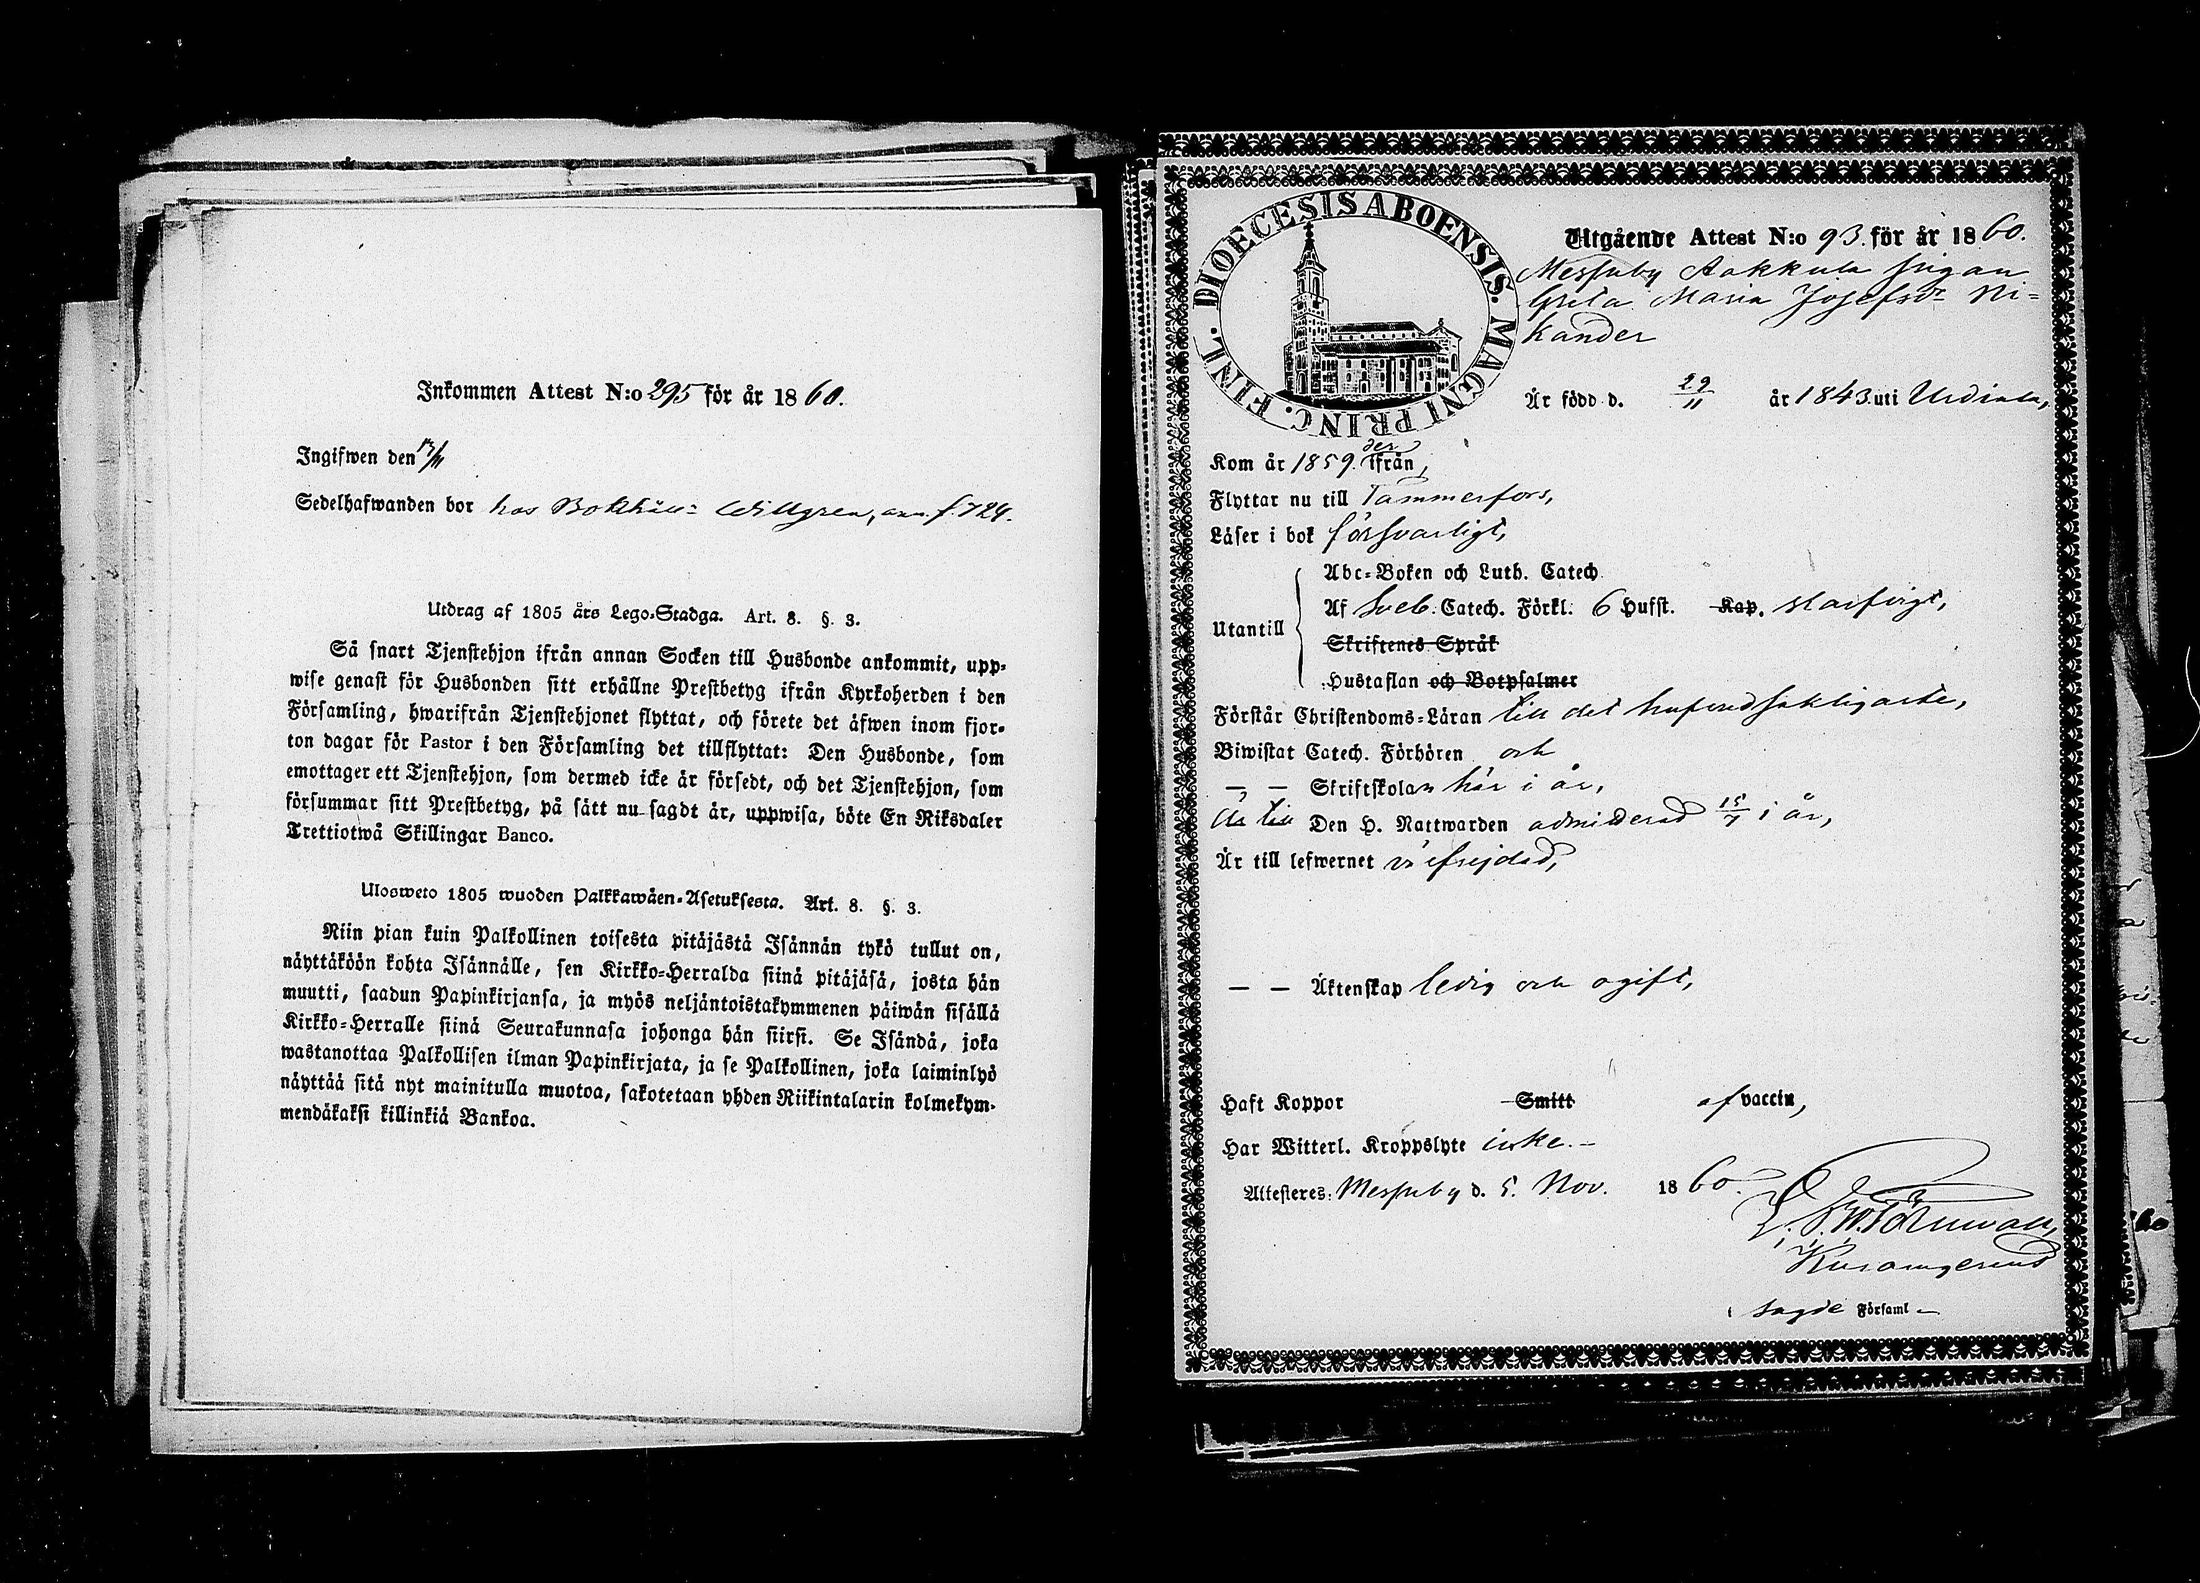 Inkommen Attest N:o 295 för år 1860.
Ingifwen den 13/11
Sedelhafwanden bor hos Bokhåll: Willgren, f. 724.
Utdrag af 1805 års Lego-Stadga. Art. 8. §. 3.
Så snart Tjenstehjon ifrån annan Socken till Husbonde ankommit, upp-
wise genast för Husbonden sitt erhållne Prestbetyg ifrån Kyrkoherden i den
Församling, hwarifrån Tjenstehjonet flyttat, och förete det äfwen inom fjor-
ton dagar för Pastor i den Församling det tillflyttat: Den Husbonde, som
emottager ett Tjenstehjon, som dermed icke är försedt, och det Tjenstehjon, som
försummar sitt Prestbetyg, på sätt nu sagdt är, uppwisa, böte En Riksdaler
Trettiotwå Skillingar Banco.
Ulosweto 1805 wuoden Palkkawäen-Asetuksesta. Art. 8. §. 3.
Niin pian kuin Palkollinen toisesta pitäjästä Isännän tykö tullut on,
näyttäköön kohta Isännälle, sen Kirkko-Herralda siinä pitäjäsä, josta hän
muutti, saadun Papinkirjansa, ja myös neljäntoistakymmenen päiwän sisällä
Kirkko-Herralle siinä Seurakunnasa johonga hän siirsi. Se Isändä, joka
wastanottaa Palkollisen ilman Papinkirjata, ja se Palkollinen, joka laiminlyö
näyttää sitä nyt mainitulla muotoa, sakotetaan yhden Riikintalarin kolmekym-
mendäkaksi killinkiä Bankoa.
DIOECESIS ABOENSIS. MAGNI PRINC. FINL.
Utgående Attest N:o 93. för år 1860.
Messuby Aakkula pigan
Greta Maria Josefsdr Ni=
kander
Är född d. 29/11 år 1843 uti Urdiala,
Kom år 1859. derifrån,
Flyttar nu till Tammerfors,
Läser i bok försvarligt,
Abc-Boken och Luth. Catech.
Utantill Af Sveb. Catech. Förkl. 6 Hufst. Kap. slarfvigt,
Skriftenes Språk
Hustaflan och Botpsalmer
Förstår Christendoms-Läran till det hufvudsakligaste,
Biwistat Catech. Förhören och
— — Skriftskolan här i år,
Är till Den H. Nattwarden admitterad 15/7 i år,
Är till lefwernet väl frejdad,
— — Äktenskap ledig och ogift,
Haft Koppor Smitt af vaccin,
Har Witterl. Kroppslyte icke. —
Attesteres: Messuby d. 5. Nov. 1860.
Törnwall,
i sagde Församl